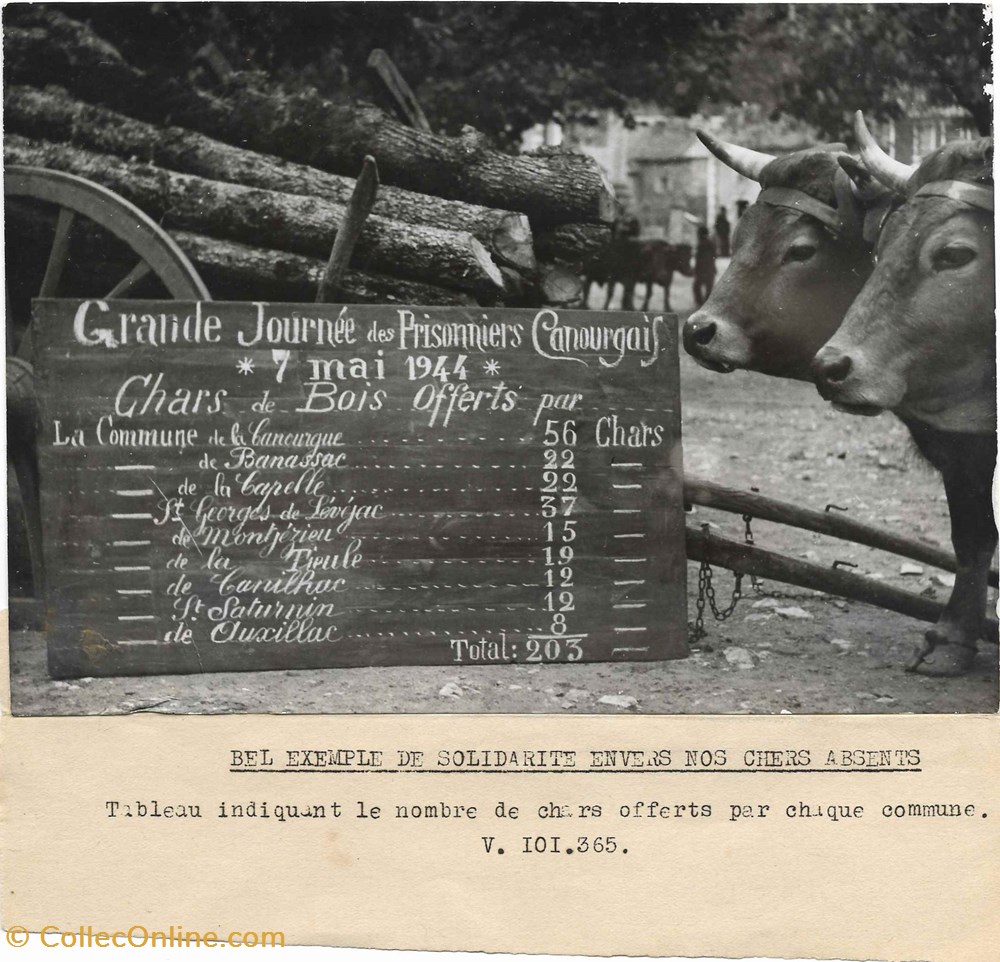 Grande Journée des Prisonniers Canourgais
* 7 mai 1944 *
Chars de Bois Offerts par
La Commune de la Canourgue ........ 56 Chars
— de Banassac ........ 22 —
— de la Capelle ........ 22 —
— St Georges de Lévéjac ........ 37 —
— de Montjézieu ........ 15 —
— de la Tieule ........ 19 —
— de Canilhac ........ 12 —
— St Saturnin ........ 12 —
— de Auxillac ........ 8 —
Total: 203 —
BEL EXEMPLE DE SOLIDARITE ENVERS NOS CHERS ABSENTS
Tableau indiquant le nombre de chars offerts par chaque commune.
V. IOI.365.
© CollecOnline.com